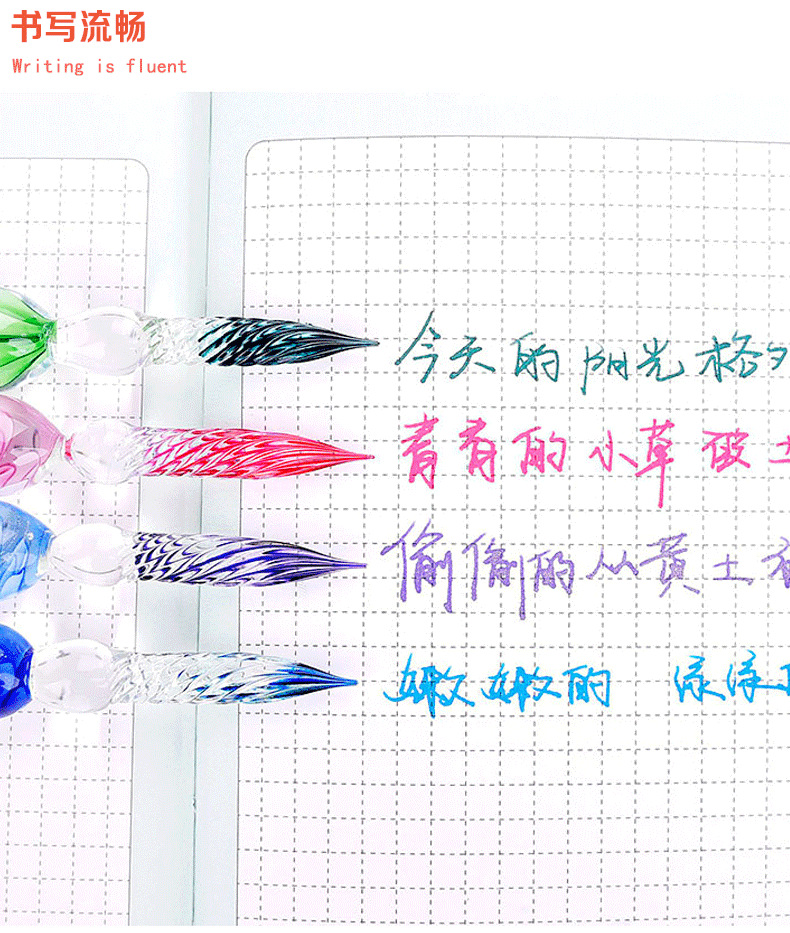 书写流畅
Writing is fluent
今天的阳光格
青青的小草破土
偷偷的从黄土
嫩嫩的 绿绿